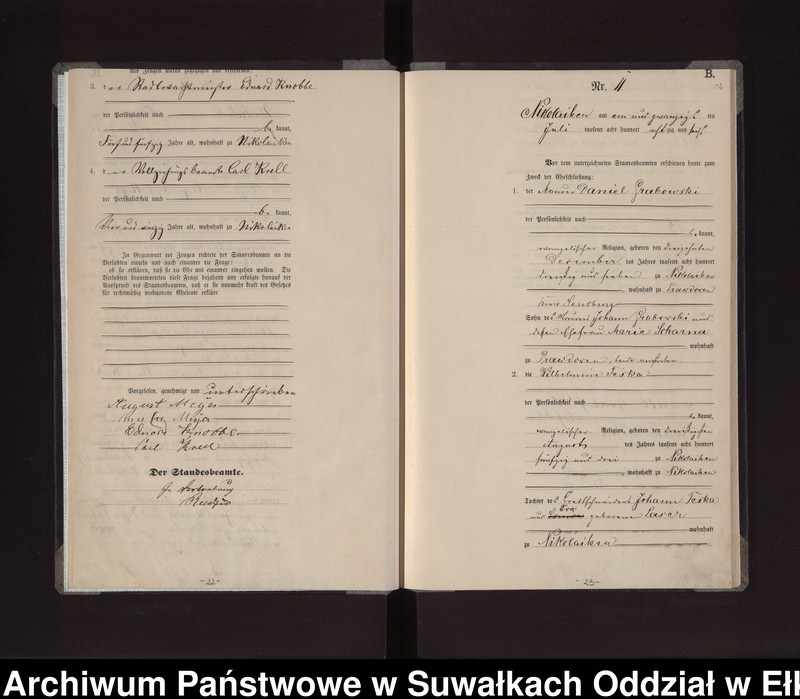 3. der Stadtwachtmeister Eduard Knobbe
der Persönlichkeit nach
be kannt,
Fünf und fünfzig Jahre alt, wohnhaft zu Nikolaiken
4. der Vollziehungsbeamte Carl Krell
der Persönlichkeit nach
be kannt,
Jahre alt, wohnhaft zu Nikolaiken
In Gegenwart der Zeugen richtete der Standesbeamte an die
Verlobten einzeln und nach einander die Frage:
ob sie erklären, daß sie die Ehe mit einander eingehen wollen. Die
Verlobten beantworteten diese Frage bejahend und erfolgte hierauf der
Ausspruch des Standesbeamten, daß er sie nunmehr kraft des Gesetzes
für rechtmäßig verbundene Eheleute erkläre.
Vorgelesen, genehmigt und unterschrieben
August Meyer
Meyer
Eduard Knobbe
Carl Krell
Der Standesbeamte.
In Vertretung
- 22 -
B.
Nr. 11
Nikolaiken am ein und zwanzigsten
Juli tausend acht hundert achtzig und sechs
Vor dem unterzeichneten Standesbeamten erschienen heute zum
Zweck der Eheschließung:
1. der Maurer Daniel Grabowski
der Persönlichkeit nach
be kannt,
evangelischer Religion, geboren den dreizehnten
Dezember des Jahres tausend acht hundert
dreißig und sieben zu Nikolaiken
, wohnhaft zu Prawdowen
Kreis Sensburg
Sohn des Maurers Johann Grabowski und
dessen Ehefrau Marie Scharna
wohnhaft
zu Prawdowen, beide verstorben
2. die Wilhelmine Teska
der Persönlichkeit nach
be kannt,
evangelischer Religion, geboren den dreißigsten
August des Jahres tausend acht hundert
fünfzig und drei zu Nikolaiken
, wohnhaft zu Nikolaiken
Tochter des Brettschneiders Johann Teska
und Eva geborene Laser
wohnhaft
zu Nikolaiken
- 23 -
Archiwum Państwowe w Suwałkach Oddział w Eł